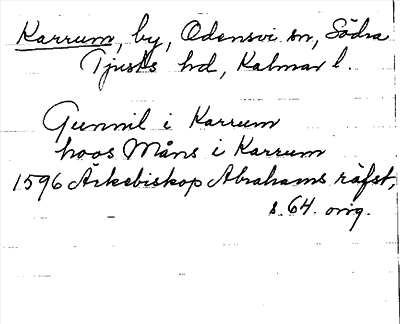 Karrum, by, Odensvi sn, Södra
Tjusts hd, Kalmar l.
Gunnil i Karrum
hoos Måns i Karrum
1596 Ärkebiskop Abrahams räfst,
s. 64. orig.